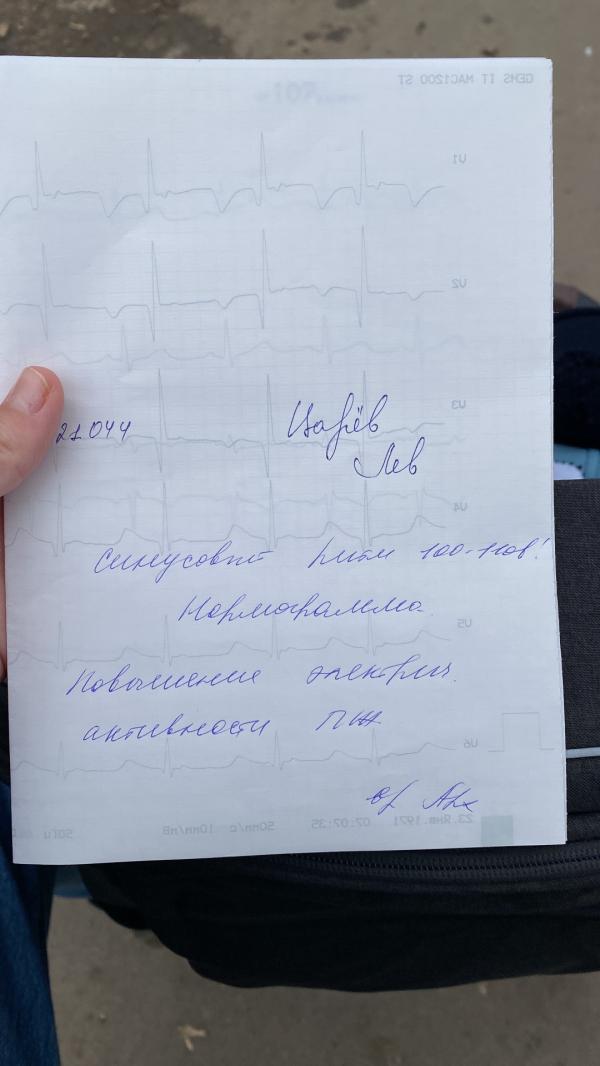 GEMS IT MAC1200 ST
V1
V2
V3
21.044
Царёв
Лев
V4
Синусовый ритм 100-110в'
Нормограмма
V5
Повышение электрич.
активности ПЖ
V6
23.Янв.1971 07:07:35 50мм/с 10мм/мВ 50Гц